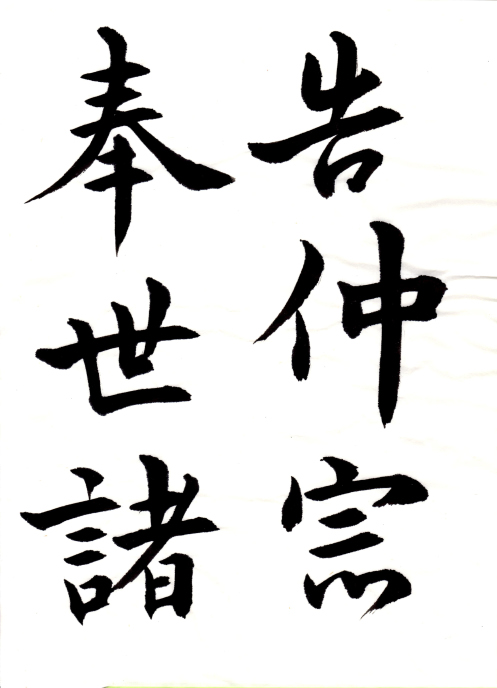 告仲宗
奉世諸